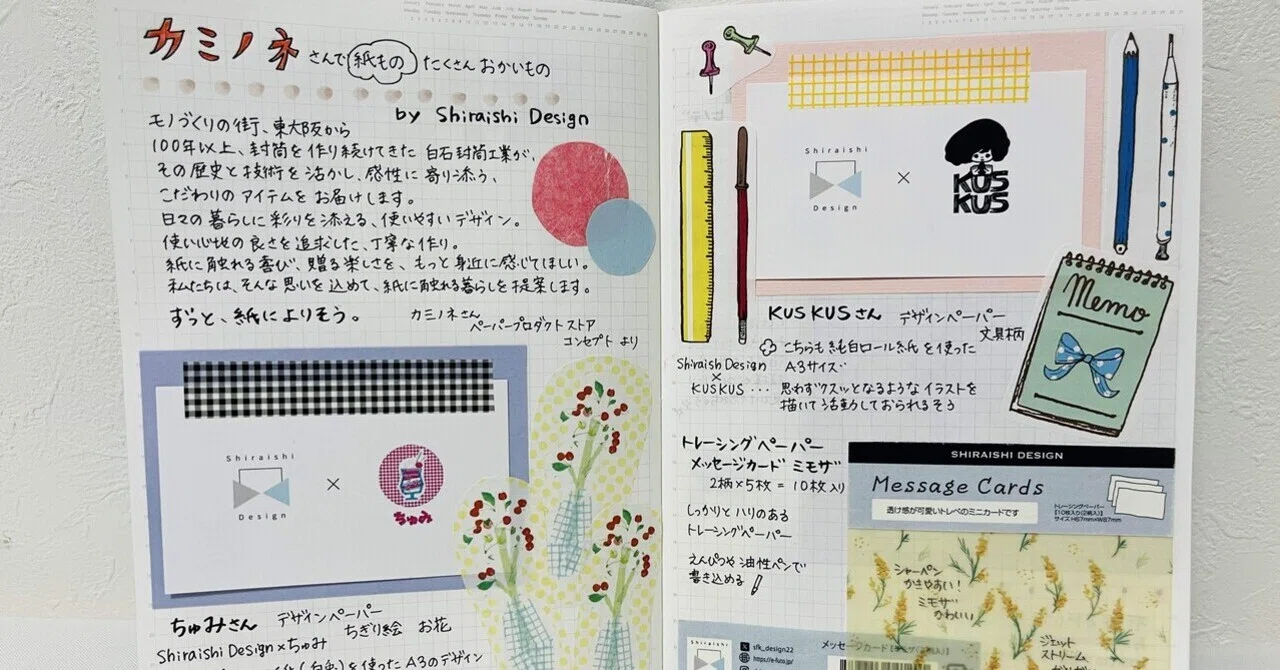 カミノネ さんで 紙もの たくさん おかいもの
by Shiraishi Design
モノづくりの街、東大阪から
100年以上、封筒を作り続けてきた 白石封筒工業が、
その歴史と技術を活かし、感性に寄り添う、
こだわりのアイテムをお届けします。
日々の暮らしに彩りを添える、使いやすいデザイン。
使い心地の良さを追求した、丁寧な作り。
紙に触れる喜び、贈る楽しさを、もっと身近に感じてほしい。
私たちは、そんな思いを込めて、紙に触れる暮らしを提案します。
ずっと、紙によりそう。
カミノネさん
ペーパープロダクトストア
コンセプトより
Shiraishi
Design
×
ちゅみ
ちゅみさん デザインペーパー
ちぎり絵 お花
Shiraishi Design×ちゅみ
を使った A3のデザイン
Shiraishi
Design
×
KUS
KUS
Memo
KUSKUSさん デザインペーパー
文具柄
こちらも純白ロール紙を使った
A3サイズ
Shiraish Design
×
KUSKUS ・・・ 思わずクスッとなるようなイラストを
描いて活動しておられるそう
トレーシングペーパー
メッセージカード ミモザ
2柄×5枚=10枚入り
しっかりとハリのある
トレーシングペーパー
えんぴつや油性ペンで
書き込める
SHIRAISHI DESIGN
Message Cards
透け感が可愛いトレペのミニカードです
トレーシングペーパー
【10枚入り(2柄入)】
サイズ:H57mm×W87mm
シャーペン
かきやすい!
ミモザ
かわいい
ジェット
ストリーム
Shiraishi
sfk_design22
https://e-futo.jp/
メッセージカード